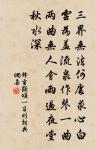 三界無法何處求心白
雲為蓋流泉作琴一曲
兩曲無人會雨過夜塘
秋水深
釋重顯頌一百則詞典
網集